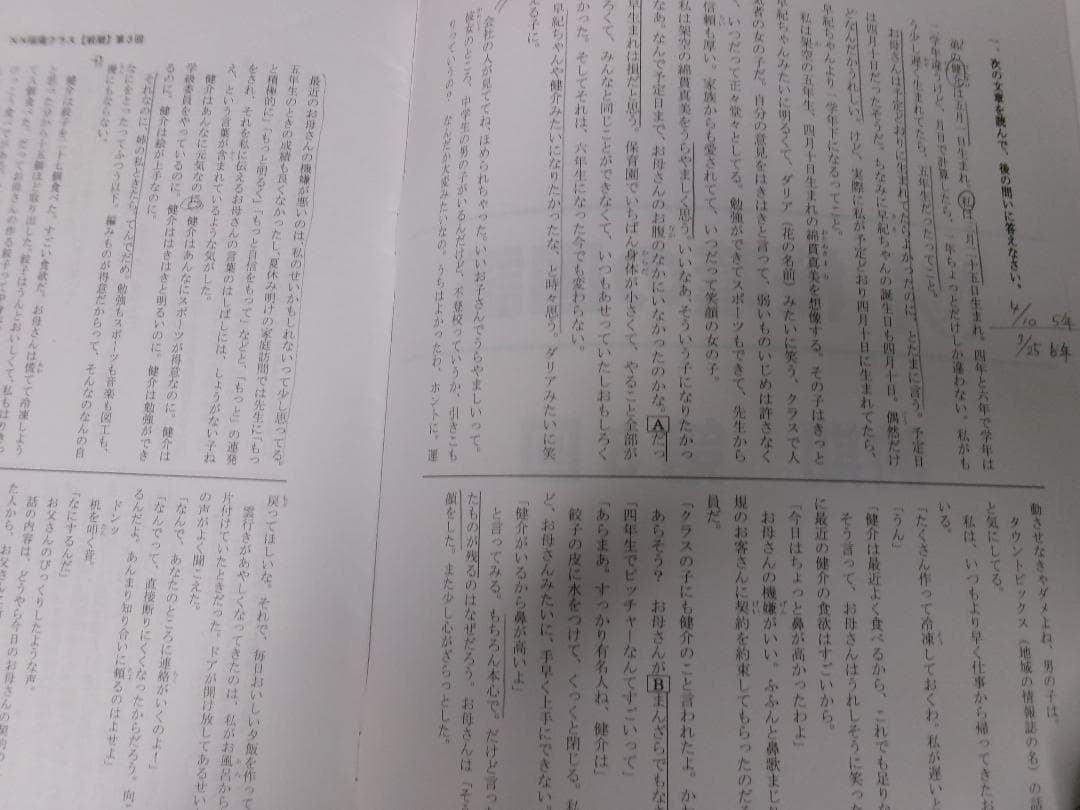 一、次の文章を読んで、後の問いに答えなさい。
弟の健介は五月一日生まれ。私は三月二十五日生まれ。四年と六年で学年は
二学年違うけど、月日で計算したら、二年ちょっとだけしか違わない。私がも
う少し遅く生まれてたら、五年生だったってこと。
お母さんは予定どおりに生まれてたらよかったのに、とたまに言う。予定日
は四月十日だったそうだ。ちなみに早紀ちゃんの誕生日も四月十日。偶然だけ
どなんだかうれしい。けど、実際に私が予定どおり四月十日に生まれてたら、
早紀ちゃんより一学年下になるってこと。
私は架空の五年生、四月十日生まれの綿貫真美を想像する。その子はきっと
早紀ちゃんみたいに明るくて、ダリア（花の名前）みたいに笑う、クラスで人
気者の女の子だ。自分の意見をはきはきと言って、弱いものいじめは許さなく
て、いつだって正々堂々としてる。勉強ができてスポーツもできて、先生から
信頼も厚い。家族からも愛されてて、いつだって笑顔の女の子。
私は架空の綿貫真美をうらやましく思う。いいなあ、そういう子になりたかっ
なあ。なんで予定日まで、お母さんのお腹のなかにいなかったのかな。Aだっ
早生まれは損だと思う。保育園でいちばん身体が小さくて、やること全部が
ろくて、みんなと同じことができなくて、いつもあせっていたしおもしろく
かった。そしてそれは、六年生になった今でも変わらない。
早紀ちゃんや健介みたいになりたかったな、と時々思う。ダリアみたいに笑
える子に。
会社の人が見ててね、ほめられちゃった。いいお子さんでうらやましいって。
彼女のところ、中学生の男の子がいるんだけど、不登校っていうか、引きこも
りっていうの？　なんだか大変みたいなの。うちはよかったわ、ホントに。運
4/10　5年
3/25　6年
動させなきゃダメよね、男の子は。
タウントピックス（地域の情報誌の名）の
と気にしてる。
私は、いつもより早く仕事から帰ってきた
いる。
「たくさん作って冷凍しておくわ。私が遅い
「うん」
「健介は最近よく食べるから、これでも足りな
そう言って、お母さんはうれしそうに笑った
に最近の健介の食欲はすごいから。
「今日はちょっと鼻が高かったわよ」
お母さんの機嫌がいい。ふふんと鼻歌まじ
規のお客さんに契約を約束してもらったのだ
員だ。
「クラスの子にも健介のこと言われたよ。か
あらそう？　お母さんがBまんざらでもな
「四年生でピッチャーなんてすごいって」
「あらまあ。すっかり有名人ね、健介は」
餃子の皮に水をつけて、くっくと閉じる。私
ど、お母さんみたいに、手早く上手にできない。
「健介がいるから鼻が高いよ」
と言ってみる。もちろん本心で。だけど言っ
たものが残るのはなぜだろう。お母さんは「そ
顔をした。また少し心がざらっとした。
クラス【前期】第3回
最近のお母さんの機嫌が悪いのは私のせいかもしれないって少し思ってる。
五年生のときの成績も良くなかったし、夏休み明けの家庭訪問では先生に「もっ
と積極的に」「もっと明るく」「もっと自信をもって」などと、「もっと」の連発
をされ、それを私に伝えるお母さんの言葉のはしばしには、しょうがない子ね
え、という言葉が含まれているような気がした。
健介はあんなに元気なのに。健介はあんなにスポーツが得意なのに。健介は
学級委員をやっているのに。健介ははきはきと明るいのに。健介は勉強ができ
るのに。健介は絵が上手なのに。
それなのに、姉の私ときたらてんでだめ。勉強もスポーツも音楽も図工も、
なにをとったってふつう以下。編みものが得意だからって、そんなのなんの自
慢にもならない。
健介は餃子を二十七個食べた。すごい食欲だ。お母さんは慌てて冷凍しよう
戻ってほしいな。それで、毎日おいしい夕飯を作って
雲行きがあやしくなってきたのは、私がお風呂から
片付けていたときだった。ドアが開け放してあるせい
の声がよく聞こえた。
「なんで、あなたのところに連絡がいくのよ！」
「なんでって、直接断りにくくなったからだろう。向こ
るんだよ。あんまり知り合いに頼るのはよせよ」
ドンッ
机を叩く音。
「なにするんだ」
お父さんのびっくりしたような声。
話の内容は、どうやら今日のお母さんの契約の
たから、お父さんに